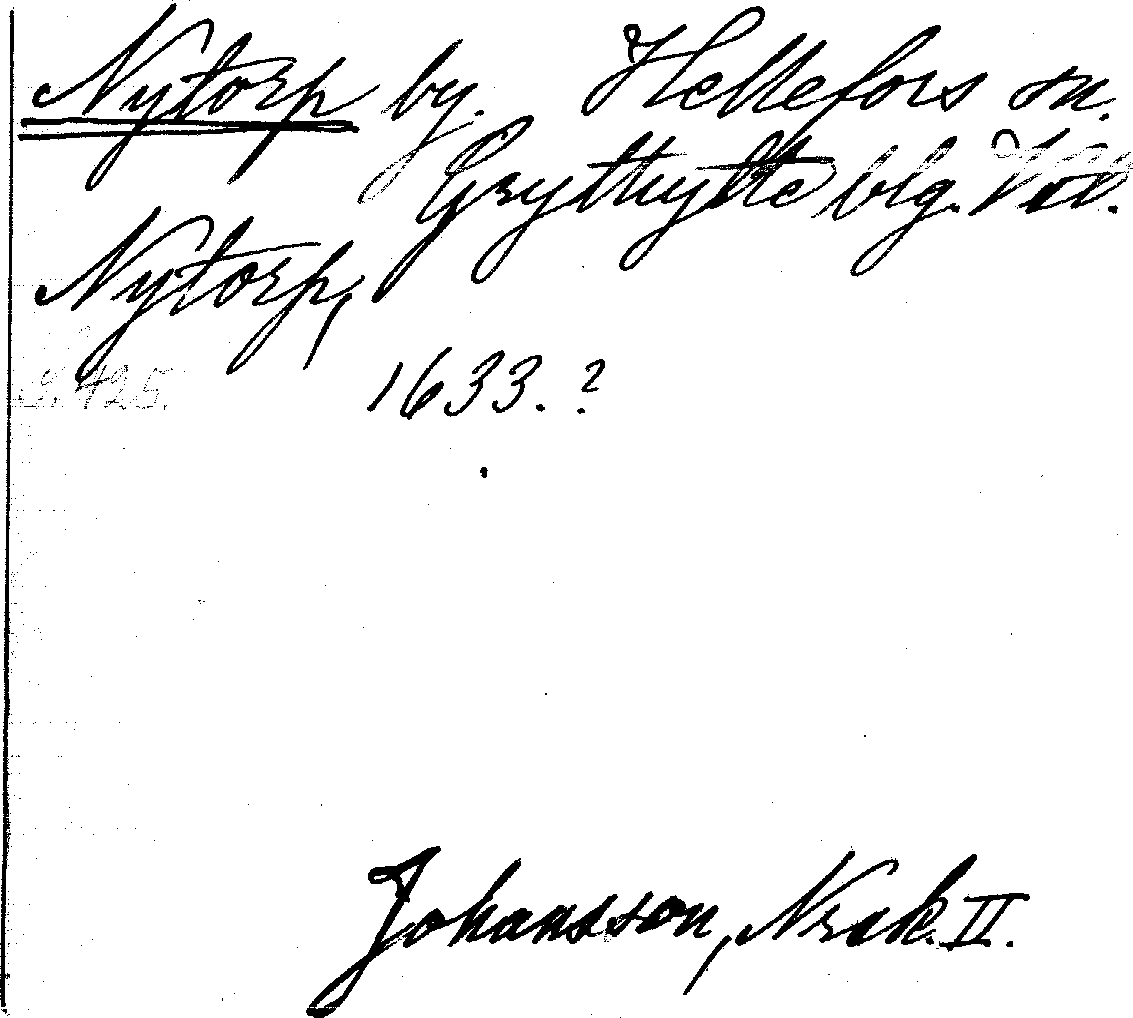 Nytorp by. Hellefors sn.
Grythytte blg. Vstl.
Nytorp,
s. 425. 1633. ?
Johansson, Nrak. II.